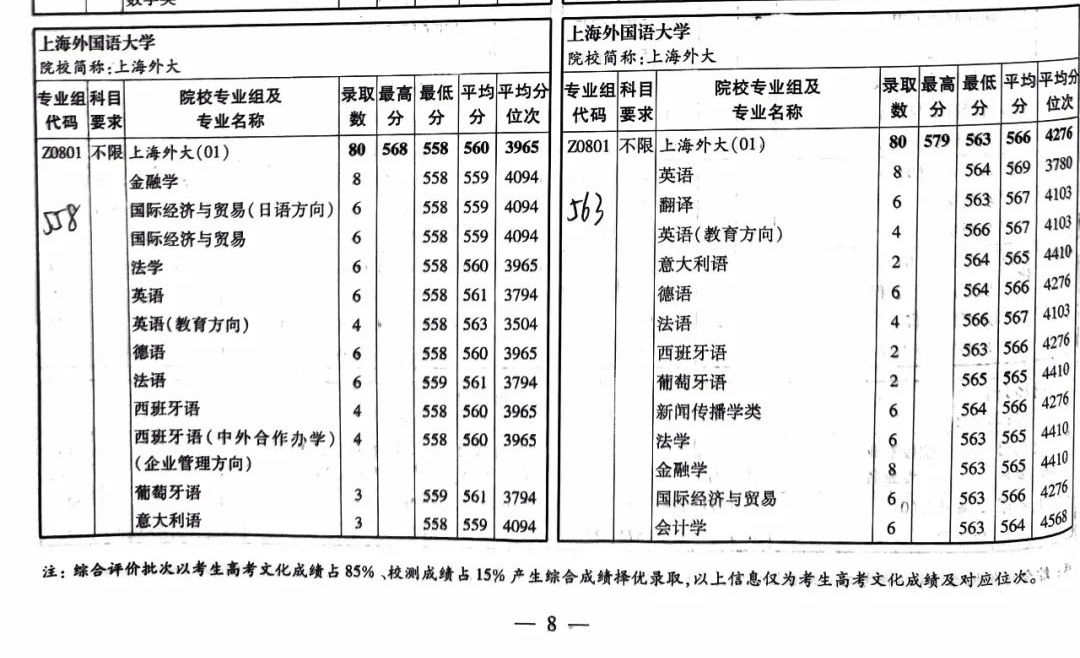 数学类
上海外国语大学
院校简称:上海外大
专业组代码 科目要求 院校专业组及专业名称 录取数 最高分 最低分 平均分 平均分位次
Z0801 不限 上海外大(01) 80 568 558 560 3965
金融学 8 558 559 4094
国际经济与贸易(日语方向) 6 558 559 4094
558
国际经济与贸易 6 558 559 4094
法学 6 558 560 3965
英语 6 558 561 3794
英语(教育方向) 4 558 563 3504
德语 6 558 560 3965
法语 6 559 561 3794
西班牙语 4 558 560 3965
西班牙语(中外合作办学) 4 558 560 3965
(企业管理方向)
葡萄牙语 3 559 561 3794
意大利语 3 558 559 4094
上海外国语大学
院校简称:上海外大
专业组代码 科目要求 院校专业组及专业名称 录取数 最高分 最低分 平均分 平均分位次
Z0801 不限 上海外大(01) 80 579 563 566 4276
英语 8 564 569 3780
翻译 6 563 567 4103
563
英语(教育方向) 4 566 567 4103
意大利语 2 564 565 4410
德语 6 564 566 4276
法语 4 566 567 4103
西班牙语 2 563 566 4276
葡萄牙语 2 565 565 4410
新闻传播学类 6 564 566 4276
法学 6 563 565 4410
金融学 8 563 565 4410
国际经济与贸易 6 563 566 4276
会计学 6 563 564 4568
注:综合评价批次以考生高考文化成绩占85%、校测成绩占15%产生综合成绩择优录取,以上信息仅为考生高考文化成绩及对应位次。
— 8 —